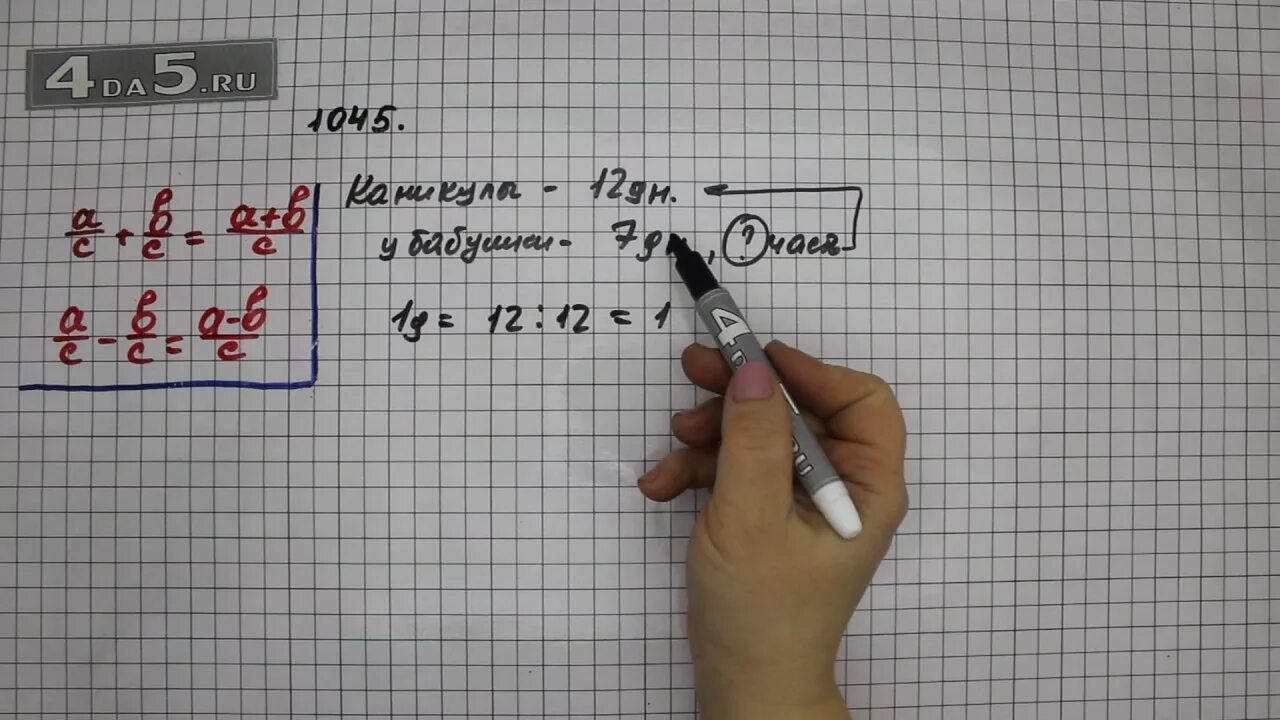 4DA5.RU
1045.
a/c + b/c = a+b/c
a/c - b/c = a-b/c
Каникулы - 12дн.
у бабушки - 7д , ? часть
1д = 12 : 12 = 1
4